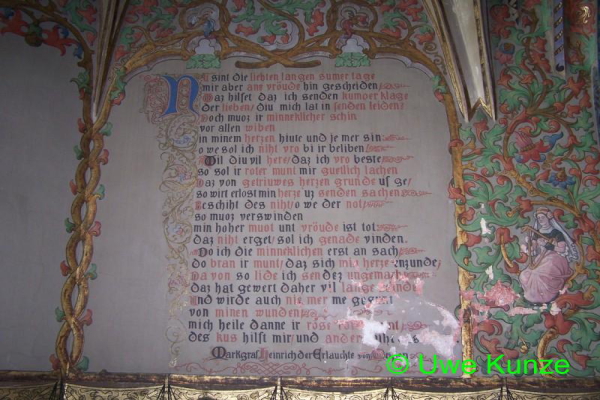 Nu sint die liehten langen sumer tage
mir aber ane vröude hin gescheiden
Waz hilfet daz ich senden kumber klage
der lieben / diu mich lat in senden leiden
Doch muoz ir minneklicher schin
vor allen wiben
in minem herzen hiute und je mer sin
o we sol ich niht vro bi ir beliben
Wil diu vil here / daz ich vro beste
so sol ir roter munt mir guetlich lachen
Daz von getriuwes herzen grunde uf ge /
so wirt erlost min herze uz senden sachen
Geschiht des niht / o we der not /
so muoz verswinden
min hoher muot unt vröude ist tot
daz niht erget / sol ich genade vinden
Do ich die minneklichen erst an sach
do bran ir munt / daz sich min herze enzunde /
Da von so lide ich sendez ungemach
Daz hat gewert daher vil lange
Und wirde auch nie mer me gesunt
von minen wunden
mich heile danne ir rose
des kus hilft mir / und ander
Markgraf Heinrich der Erlauchte
© Uwe Kunze